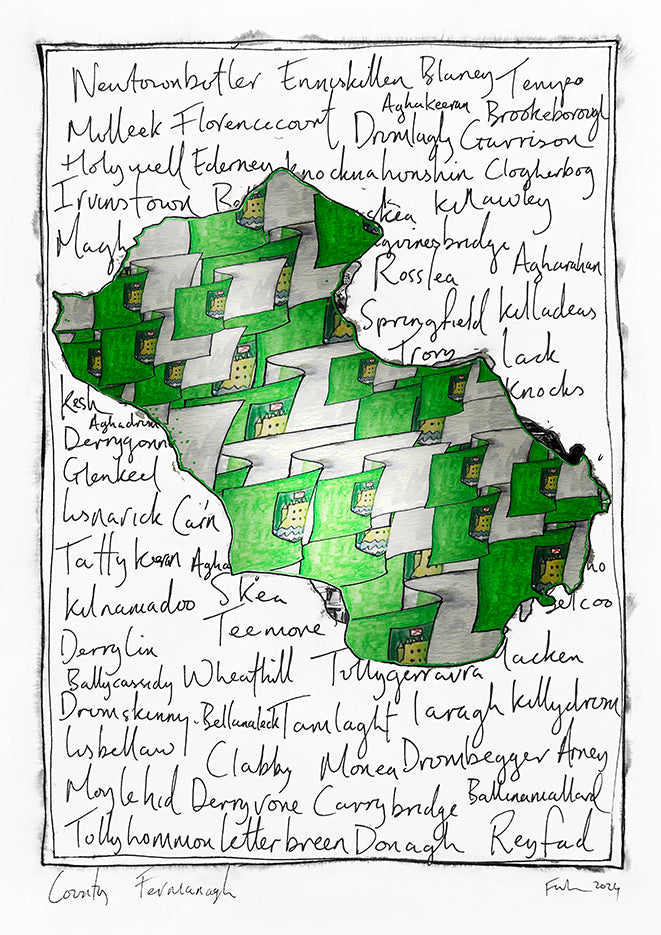 Newtownbutler Enniskillen Blaney Tempo
Mulleek Florencecourt Aghakeeran Brookeborough
Drumlaghy Garrison
Holywell Ederney knocknahonshin Clogherbog
Irvinstown skea Killawley
Magh guinesbridge
Rosslea Agharahan
Springfield Killadeas
Trory lack
Knocks
Kesh
Aghadrum
Derrygonn
Glenkeel
Lisnarick Cairn
Tattykeeran Agha
Kilnamadoo Skea
elcoo
Teemore
Derrylin lacken
Ballycassidy Wheathill Tullygerravra
Drumskinny Bellanaleck Tamlaght laragh killydrum
Lisbellaw Clabby Monea Drumbegger Arney
Moylehid Derryvone Carrybridge Ballinamallard
Tullyhommon Letterbreen Donagh Reyfad
County Fermanagh
2024